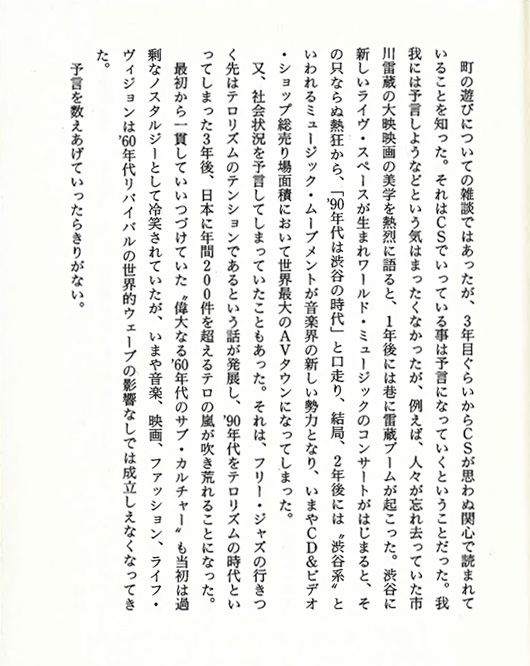 町の遊びについての雑談ではあったが、３年目ぐらいからＣＳが思わぬ関心で読まれて
いることを知った。それはＣＳでいっている事は予言になっていくということだった。我
我には予言しようなどという気はまったくなかったが、例えば、人々が忘れ去っていた市
川雷蔵の大映映画の美学を熱烈に語ると、１年後には巷に雷蔵ブームが起こった。渋谷に
新しいライヴ・スペースが生まれワールド・ミュージックのコンサートがはじまると、そ
の只ならぬ熱狂から、「'90年代は渋谷の時代」と口走り、結局、２年後には〝渋谷系〟と
いわれるミュージック・ムーブメントが音楽界の新しい勢力となり、いまやＣＤ＆ビデオ
・ショップ総売り場面積において世界最大のＡＶタウンになってしまった。
　又、社会状況を予言してしまっていたこともあった。それは、フリー・ジャズの行きつ
く先はテロリズムのテンションであるという話が発展し、'90年代をテロリズムの時代とい
ってしまった３年後、日本に年間２００件を超えるテロの嵐が吹き荒れることになった。
　最初から一貫していいつづけていた〝偉大なる'60年代のサブ・カルチャー〟も当初は過
剰なノスタルジーとして冷笑されていたが、いまや音楽、映画、ファッション、ライフ・
ヴィジョンは'60年代リバイバルの世界的ウェーブの影響なしでは成立しえなくなってき
た。
　予言を数えあげていったらきりがない。